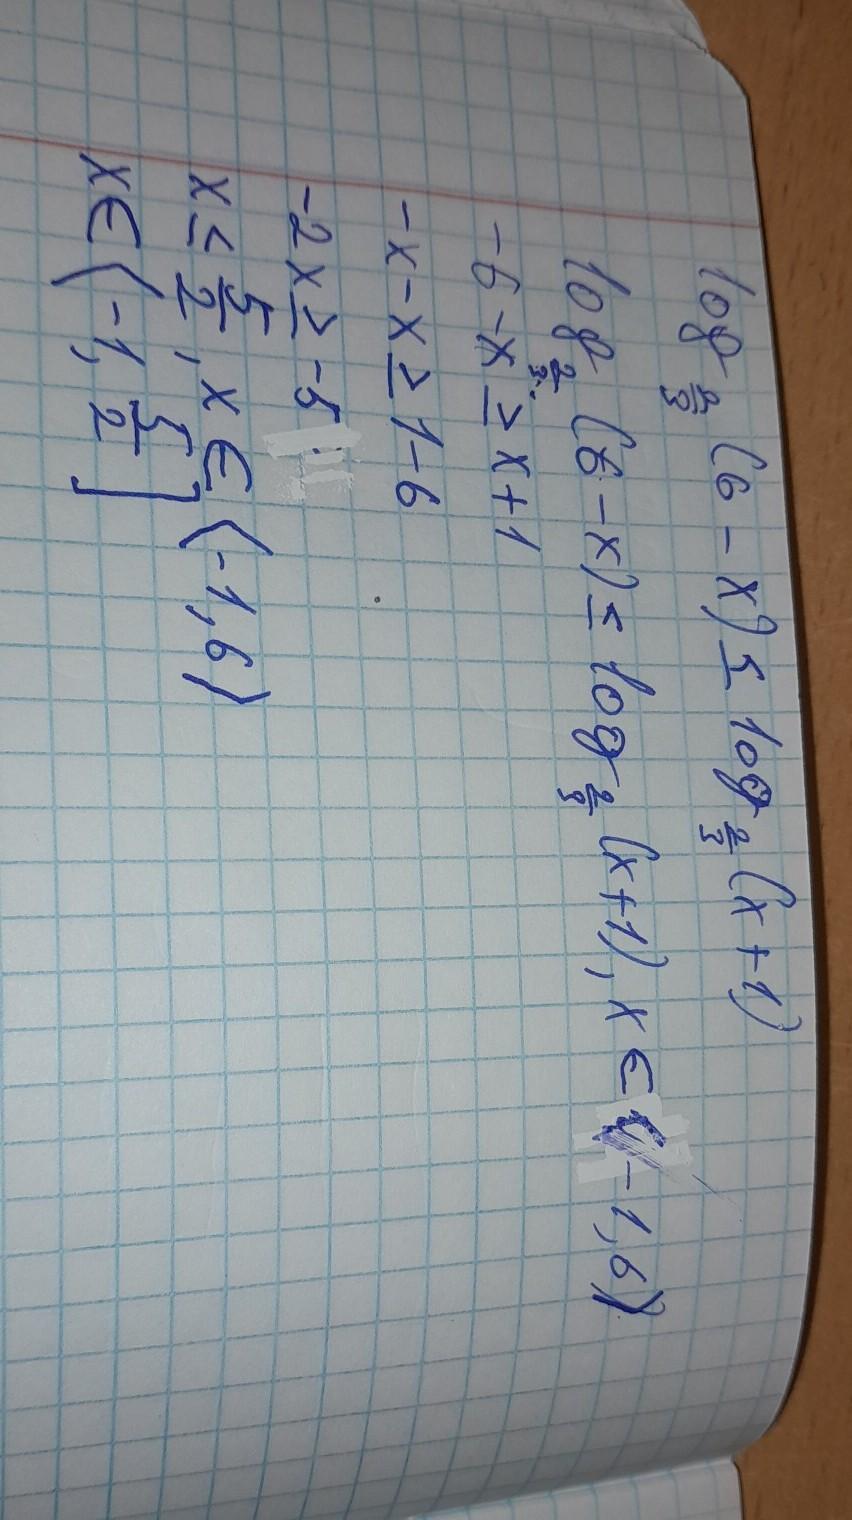 log 2/3 (6 - x) ≤ log 2/3 (x + 1)
log 2/3 (6 - x) ≤ log 2/3 (x+1), x ∈ (-1, 6)
-6 -x ≥ x+1
-x -x ≥ 1-6
-2x ≥ -5
x ≤ 5/2, x ∈ (-1, 6)
x ∈ (-1, 5/2]